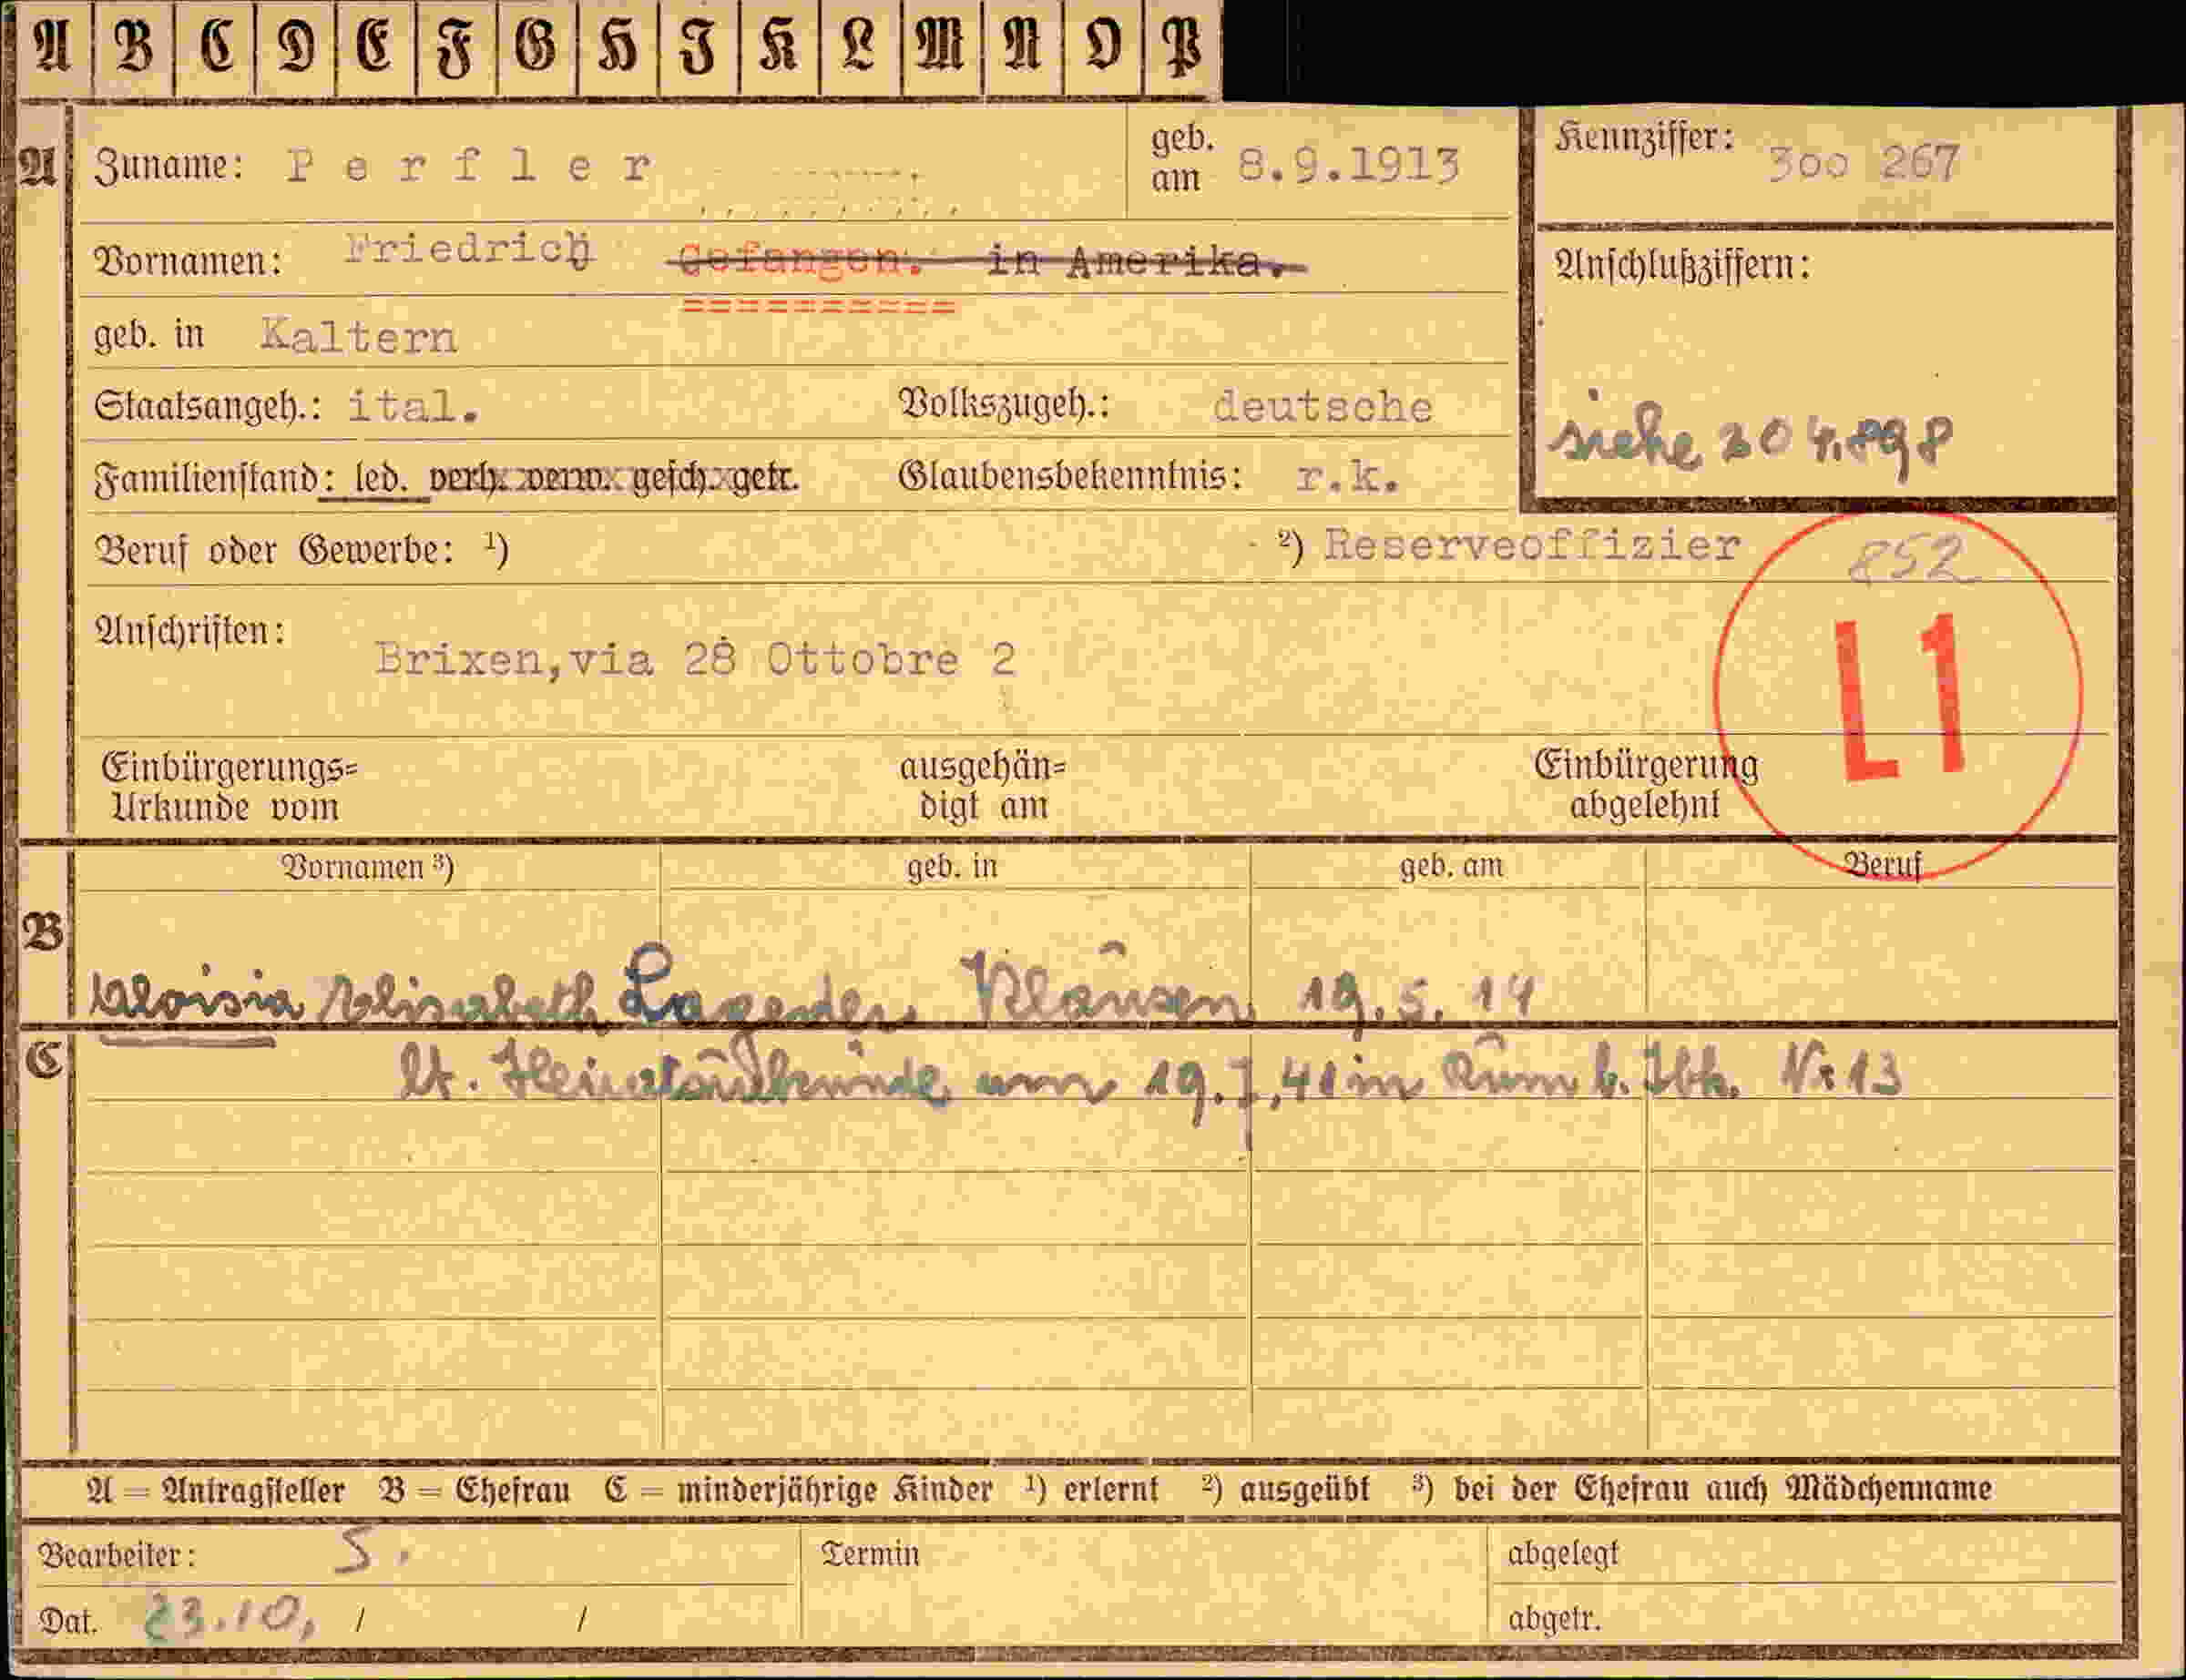 A B C D E F G H I K L M N O P
A Zuname: Perfler geb. am 8.9.1913 Kennziffer: 300 267
Vornamen: Friedrich Gefangen. in Amerika. Anschlußziffern:
==========
geb. in Kaltern
Staatsangeh.: ital. Volkszugeh.: deutsche siehe 304.898
Familienstand: led. verh. verw. gesch. getr. Glaubensbekenntnis: r.k.
Beruf oder Gewerbe: ¹) ²) Reserveoffizier 852
Anschriften: Brixen,via 28 Ottobre 2
L1
Einbürgerungs= ausgehän= Einbürgerung
Urkunde vom digt am abgelehnt
Vornamen ³) geb. in geb. am Beruf
B
Aloisia Elisabeth Lageder Klausen 19.5.14
C lt. Heiratsurkunde am 19.7.41 in Rum b. Ibk. Nr 13
A = Antragsteller B = Ehefrau C = minderjährige Kinder ¹) erlernt ²) ausgeübt ³) bei der Ehefrau auch Mädchenname
Bearbeiter: S. Termin abgelegt
Dat. 23.10. / / abgetr.